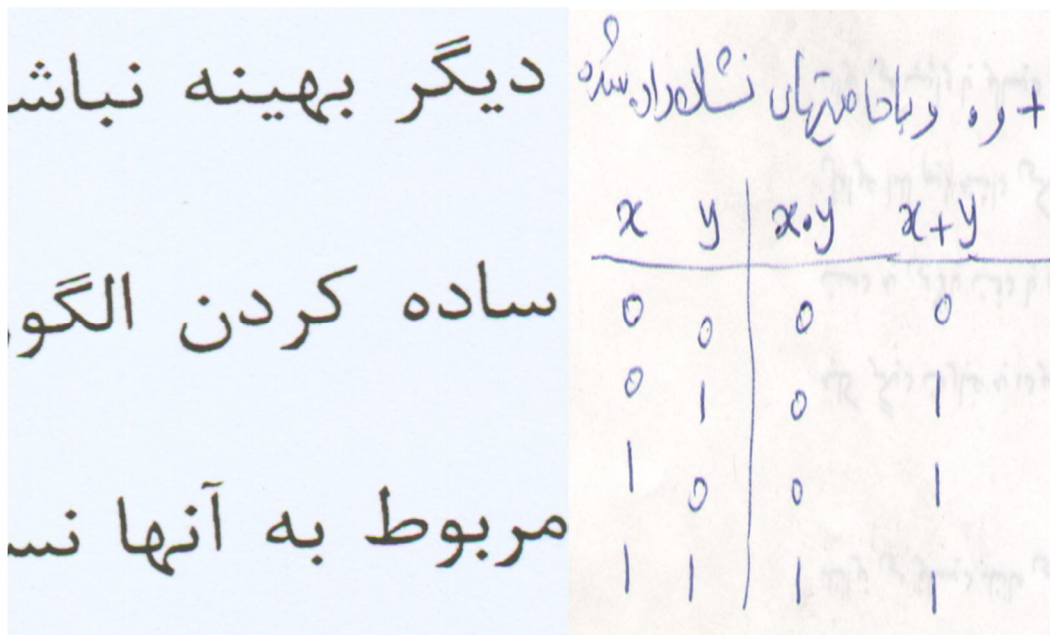 دیگر بهینه نباش
ساده کردن الگو
مربوط به آنها نس
+ و . و با خاصیتهای نشان داده شده
x y x.y x+y
0 0 0 0
0 1 0 1
1 0 0 1
1 1 1 1